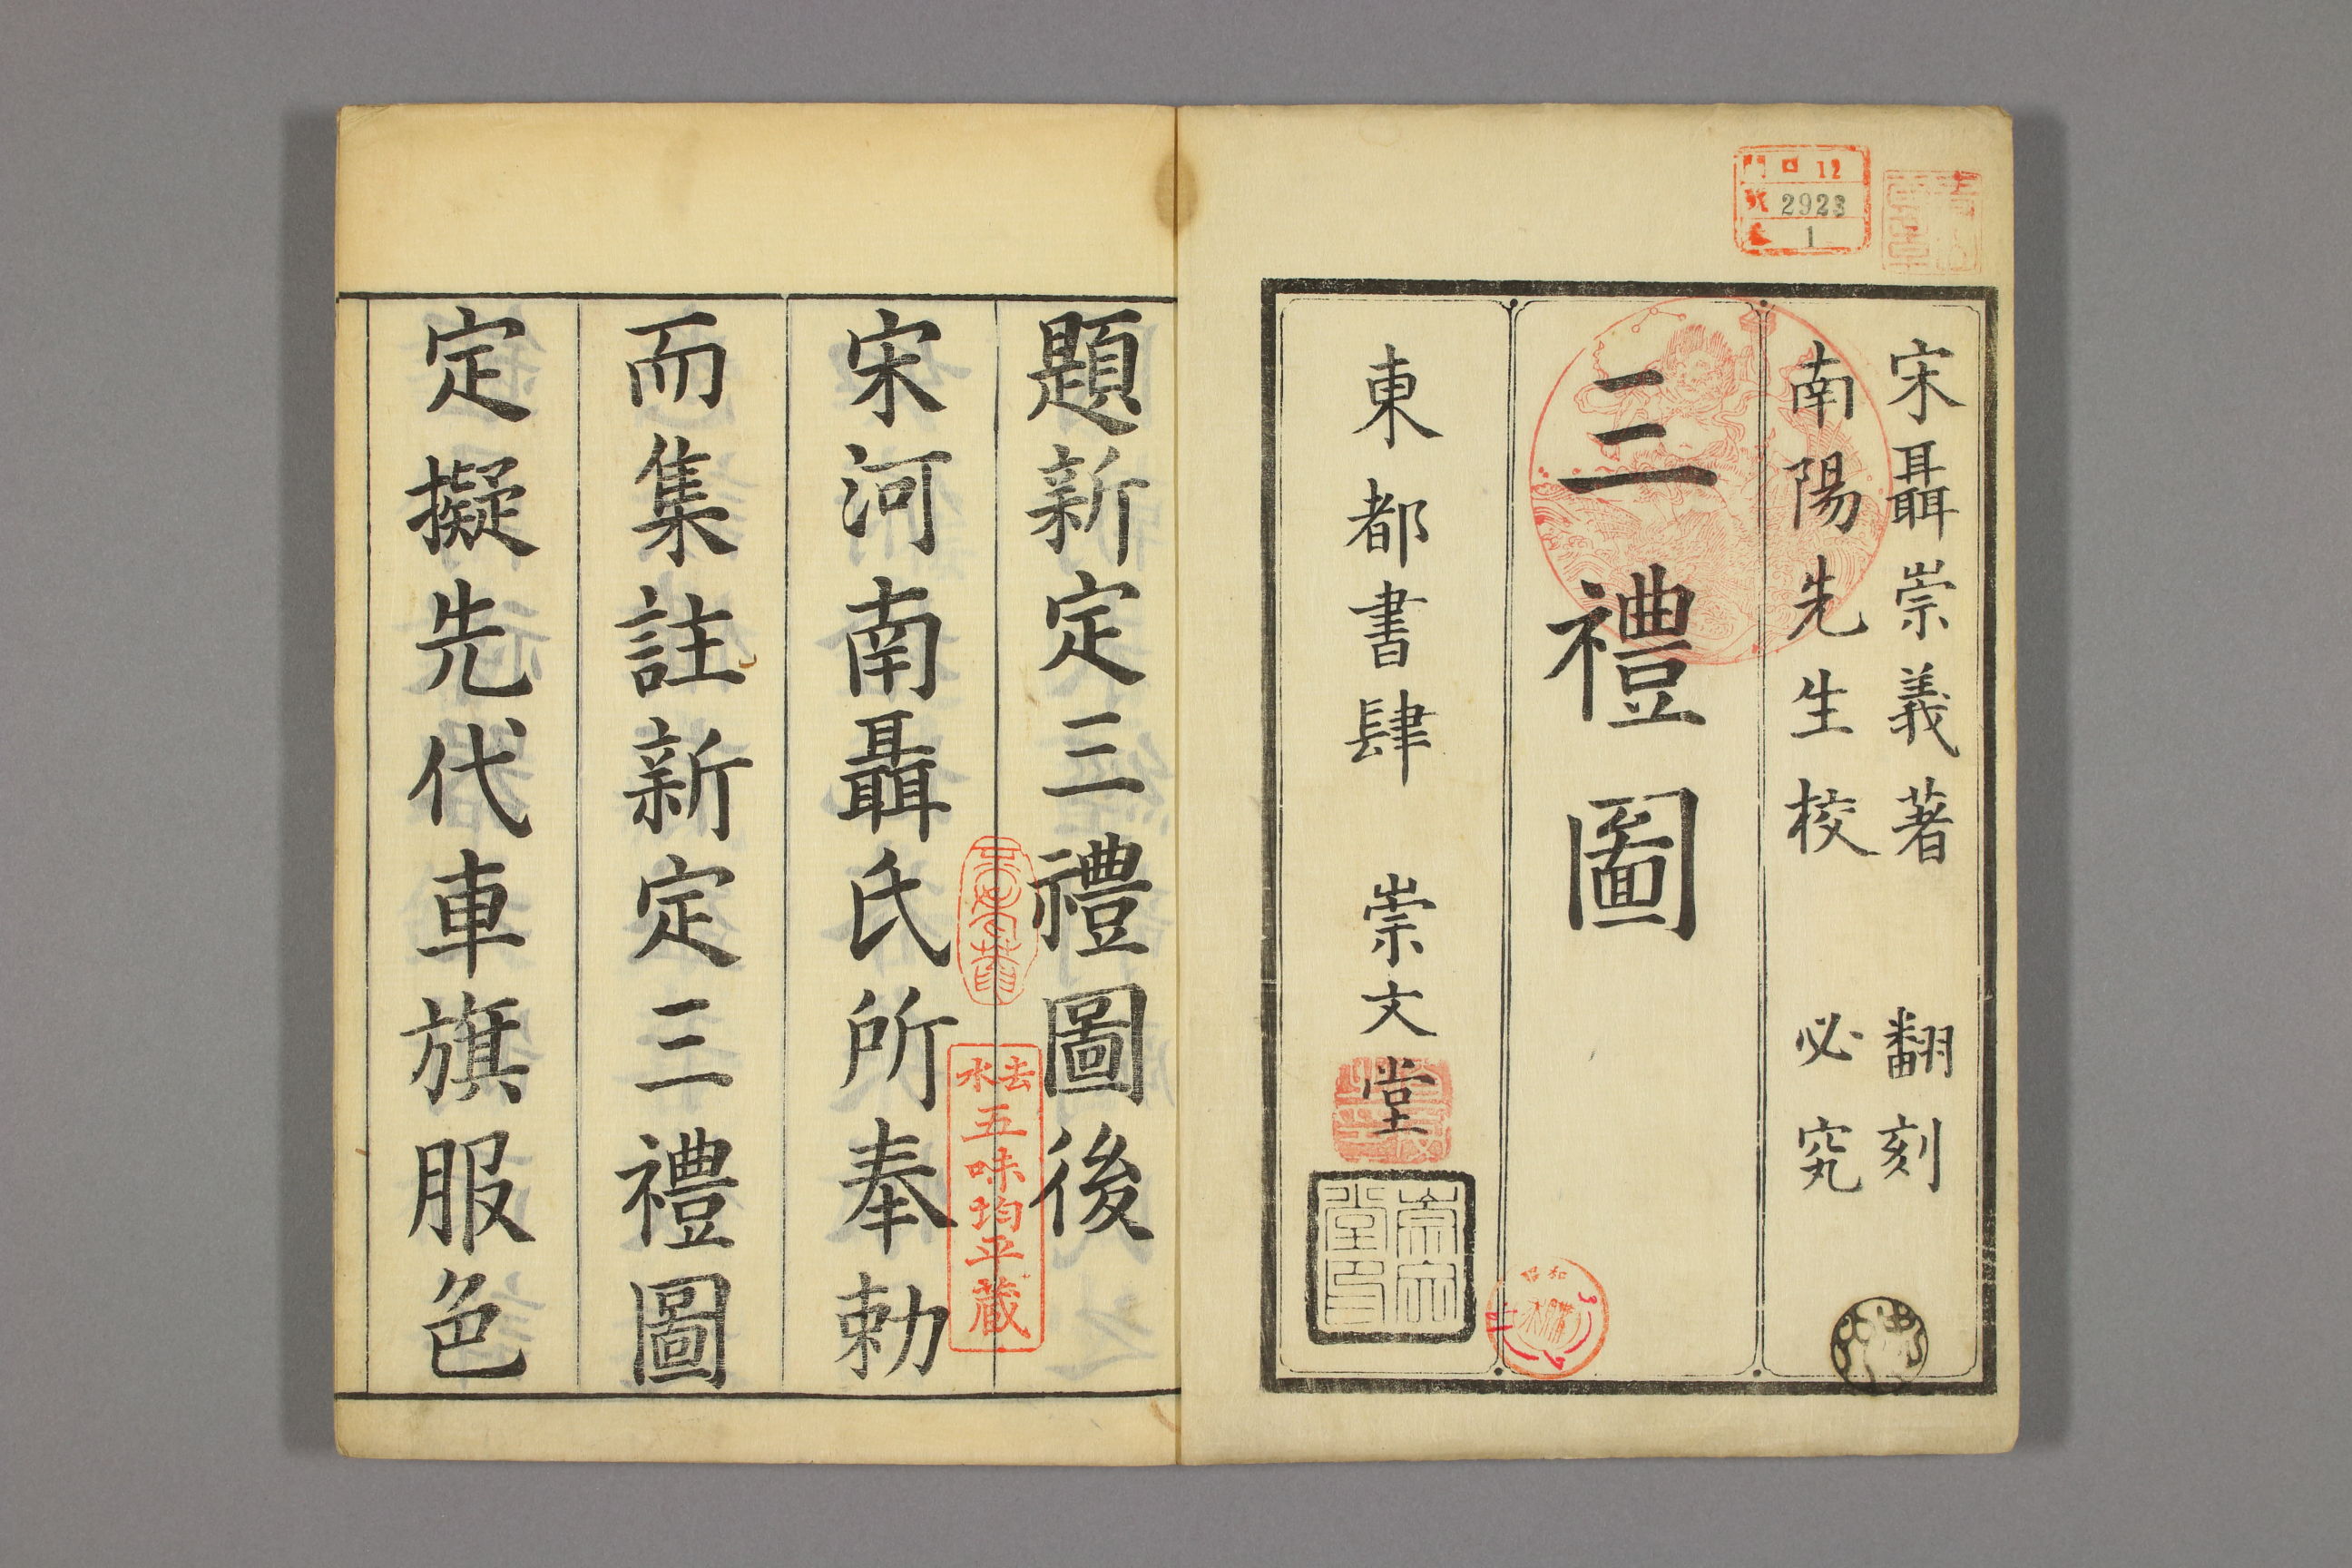 宋聶崇義著 翻刻
南陽先生校 必究
三禮圖
東都書肆 崇文堂
崇文堂印
門 ロ 12
號 2923
卷 1
題新定三禮圖後
宋河南聶氏所奉勅
而集註新定三禮圖
定擬先代車旗服色
去水
五味均平蔵